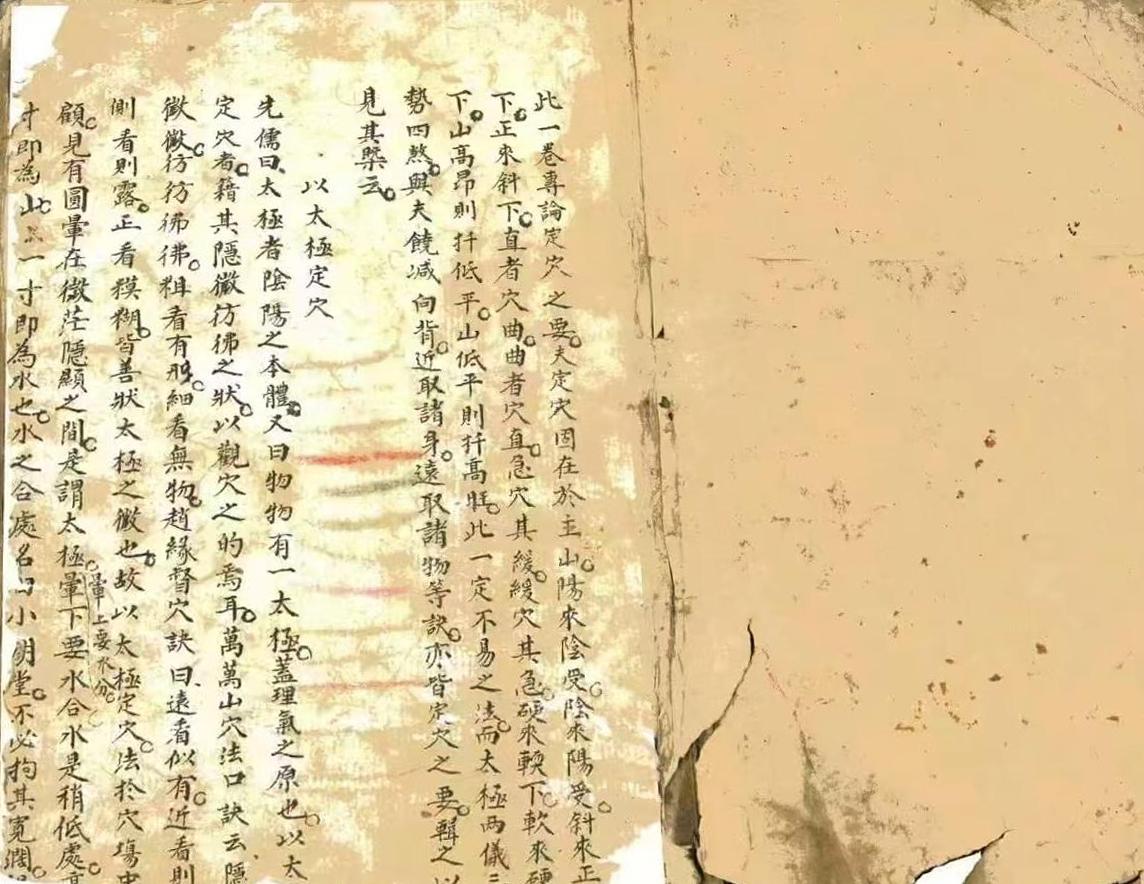 此一卷專論定穴之要夫定穴固在於主山陽來陰受陰來陽受斜來正
下正來斜下直者穴曲曲者穴直急穴其緩緩穴其急硬來輭下軟來硬
下山高昂則扦低平山低平則扦高旺此一定不易之法而太極兩儀三
勢四煞與夫饒减向背近取諸身遠取諸物等訣亦皆定穴之要輯之以
見其槩云
以太極定穴
先儒曰太極者陰陽之本體又曰物物有一太極蓋理氣之原也以太
定穴者藉其隱微彷彿之狀以觀穴之的焉耳萬萬山穴法口訣云隱
微微彷彷彿彿粗看有形細看無物趙緣督穴訣曰遠看似有近看則
側看則露正看糢糊皆善狀太極之微也故以太極定穴法於穴塲中
暈上要水分
顧見有圓暈在微茫隱顯之間是謂太極暈下要水合水是稍低處高
寸即為山上一寸即為水也水之合處名曰小明堂不必拘其寬濶